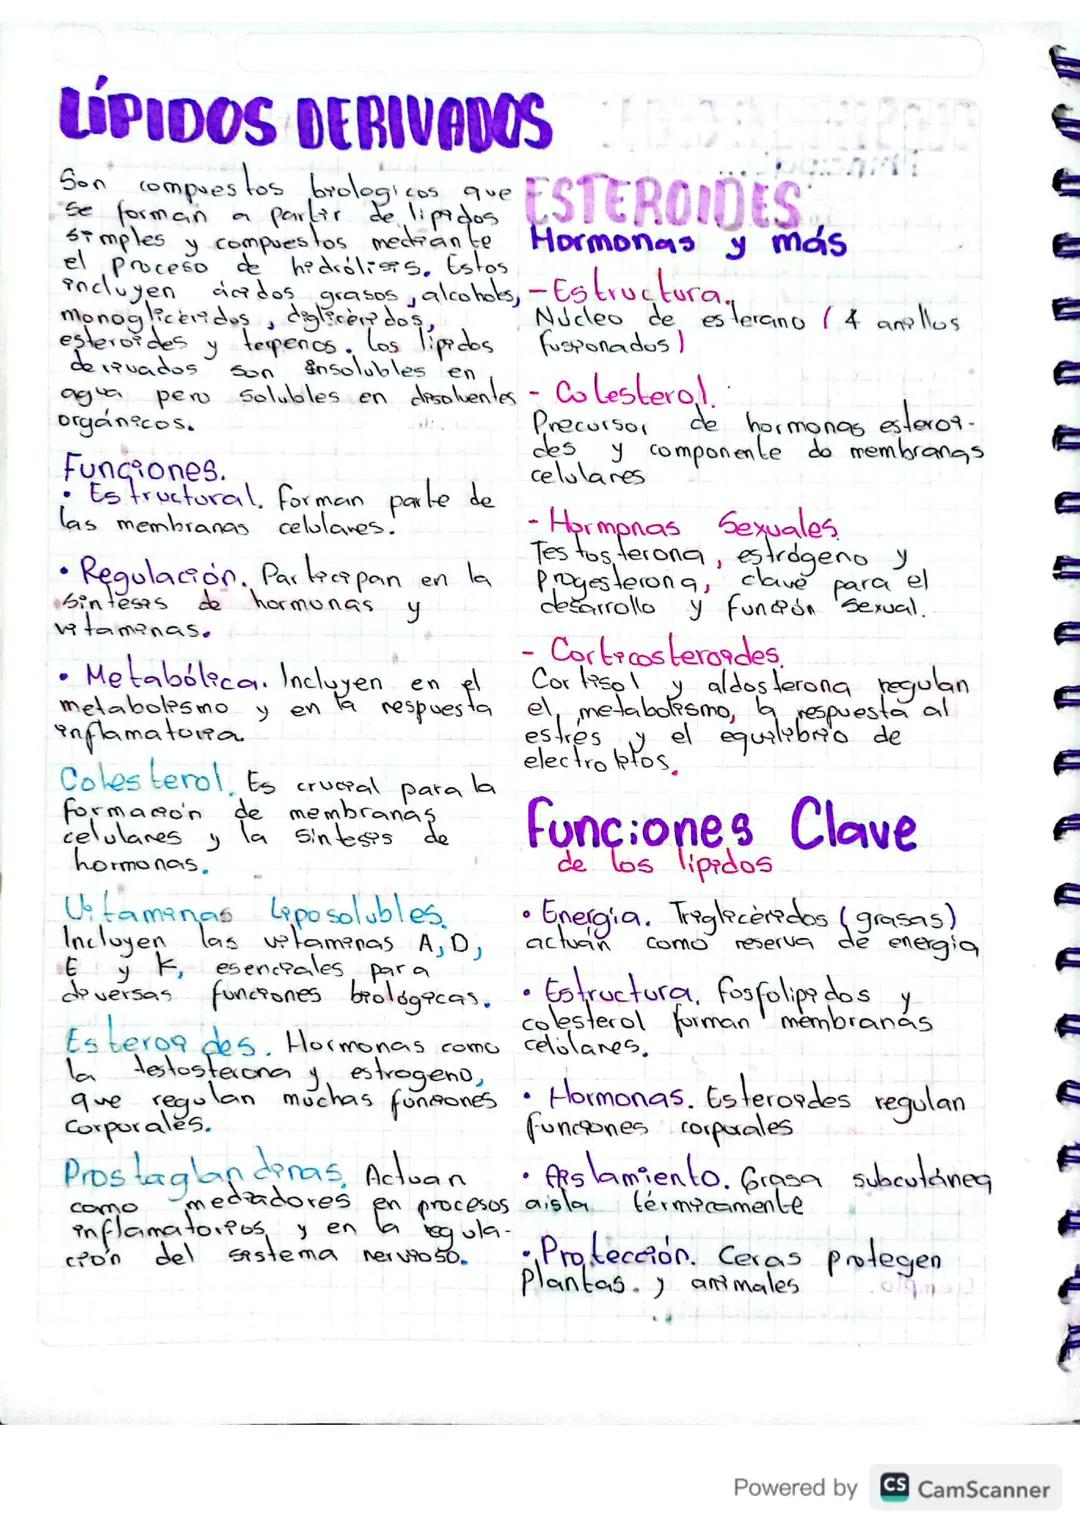 LÍPIDOS DERIVADOS
Son compuestos biologicos que
se forman a partir de lipidos
simples y compuestos mediante
el proceso de hidrólisis. Estos
incluyen ácidos grasos, alcohols,
monogliceridos, digliceridos,
esteroides y terpenos. Los lipidos
derivados son insolubles en
agua pero solubles en disolventes
orgánicos.
Funciones.
• Estructural. Forman parte de
las membranas celulares.
• Regulación. Participan en la
sintesis de hormonas y
vitaminas.
• Metabólica. Incluyen en el
metabolismo y en la respuesta
inflamatoria
Colesterol. Es crucial para la
formación de membranas
celulares y la sintesis de
hormonas.
Vitaminas liposolubles.
Incluyen las vitaminas A, D,
E y K, esenciales para
diversas funciones biológicas.
Esteroides. Hormonas como
la testosterona y estrogeno,
que regulan muchas funciones
corporales.
Prostaglandinas. Actuan
como mediadores en procesos
inflamatorios y en la regula-
ción del sistema nervioso.
ESTEROIDES
Hormonas y más
- Estructura.
Núcleo de esterano (4 anillos
fusionados)
- Colesterol.
Precursor de hormonas esteroi-
des y componente de membranas
celulares
- Hormonas Sexuales.
Testosterona, estrógeno y
progesterona, clave para el
desarrollo y función sexual.
- Corticosteroides.
Cortisol y aldosterona regulan
el metabolismo, la respuesta al
estrés y el equilibrio de
electrolitos.
Funciones Clave
de los lípidos
• Energia. Triglicéridos (grasas)
actuán como reserva de energia
• Estructura. Fosfolipidos y
colesterol forman membranas
celulares.
• Hormonas. Esteroides regulan
funciones corporales
• Aislamiento. Grasa subcutánea
aisla térmicamente
• Protección. Ceras protegen
plantas. y animales
Powered by CS CamScanner